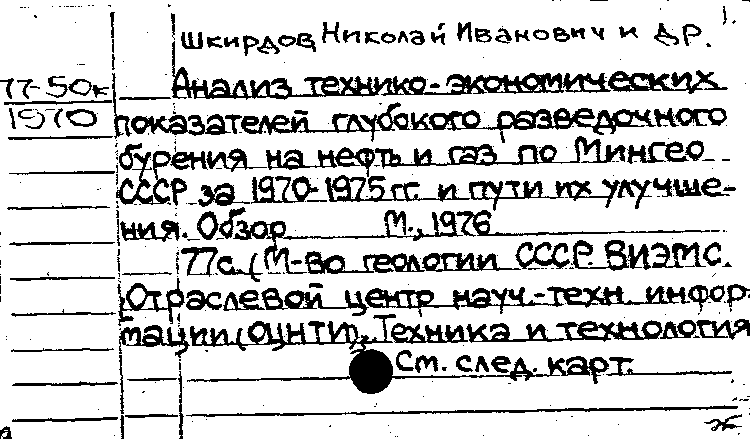 1.
Шкирдов Николай Иванович и др.
77-50к
1970
Анализ технико-экономических
показателей глубокого разведочного
бурения на нефть и газ по Мингео
СССР за 1970-1975 гг. и пути их улучше-
ния. Обзор М., 1976
77с. (М-во геологии СССР. ВИЭМС.
Отраслевой центр науч.-техн. инфор-
мации (ОЦНТИ), Техника и технология
См. след. карт.